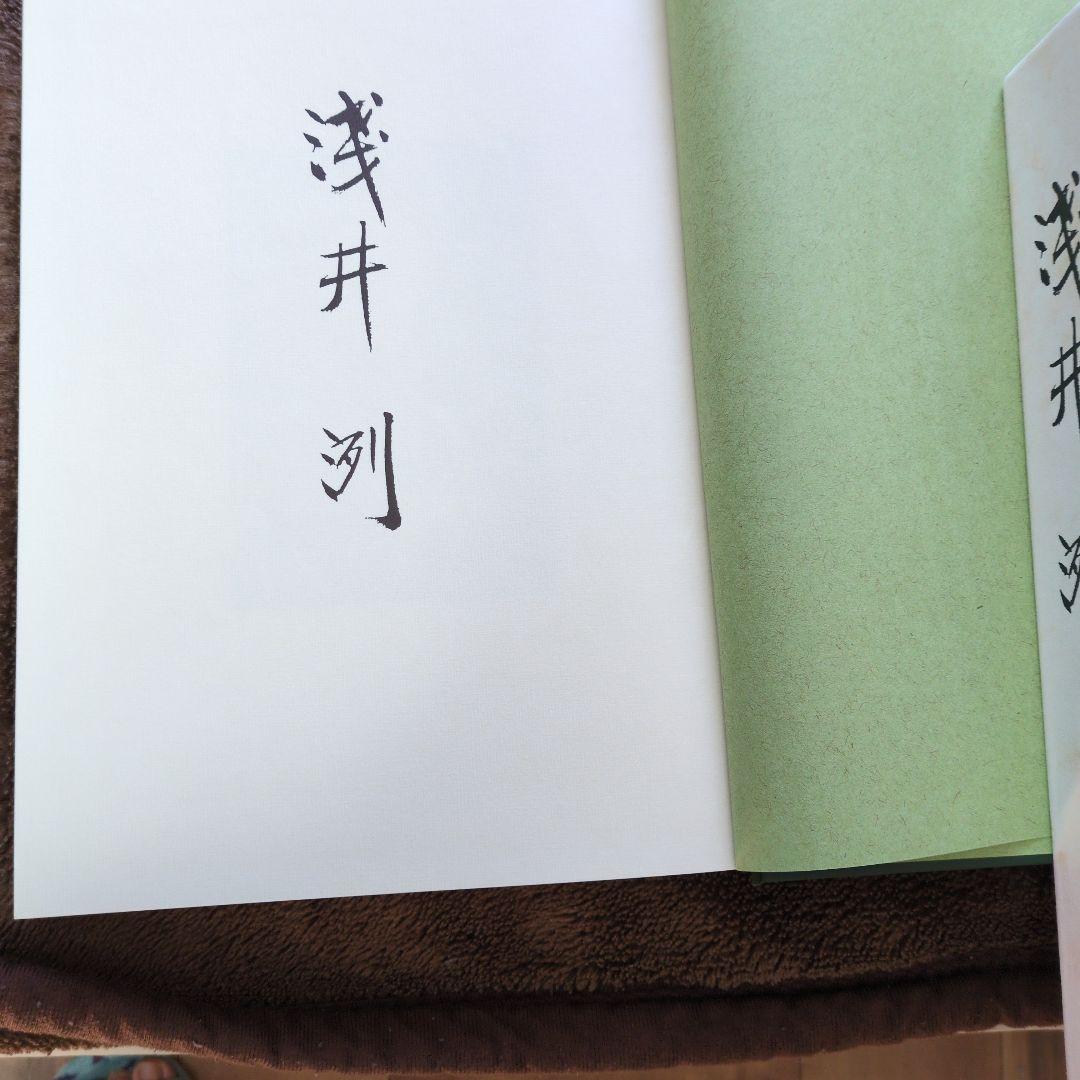 浅井
浅井 洌